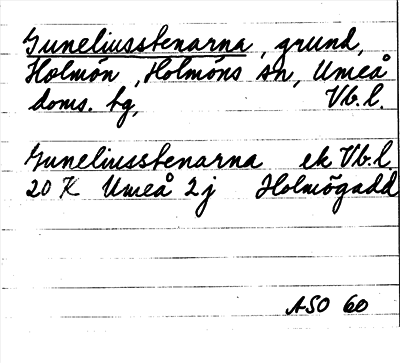 Guneliusstenarna, grund,
Holmön, Holmöns sn, Umeå
doms. tg, Vb.l.
Guneliusstenarna ek Vb.l.
20 K Umeå 2j Holmögadd
ASO 60